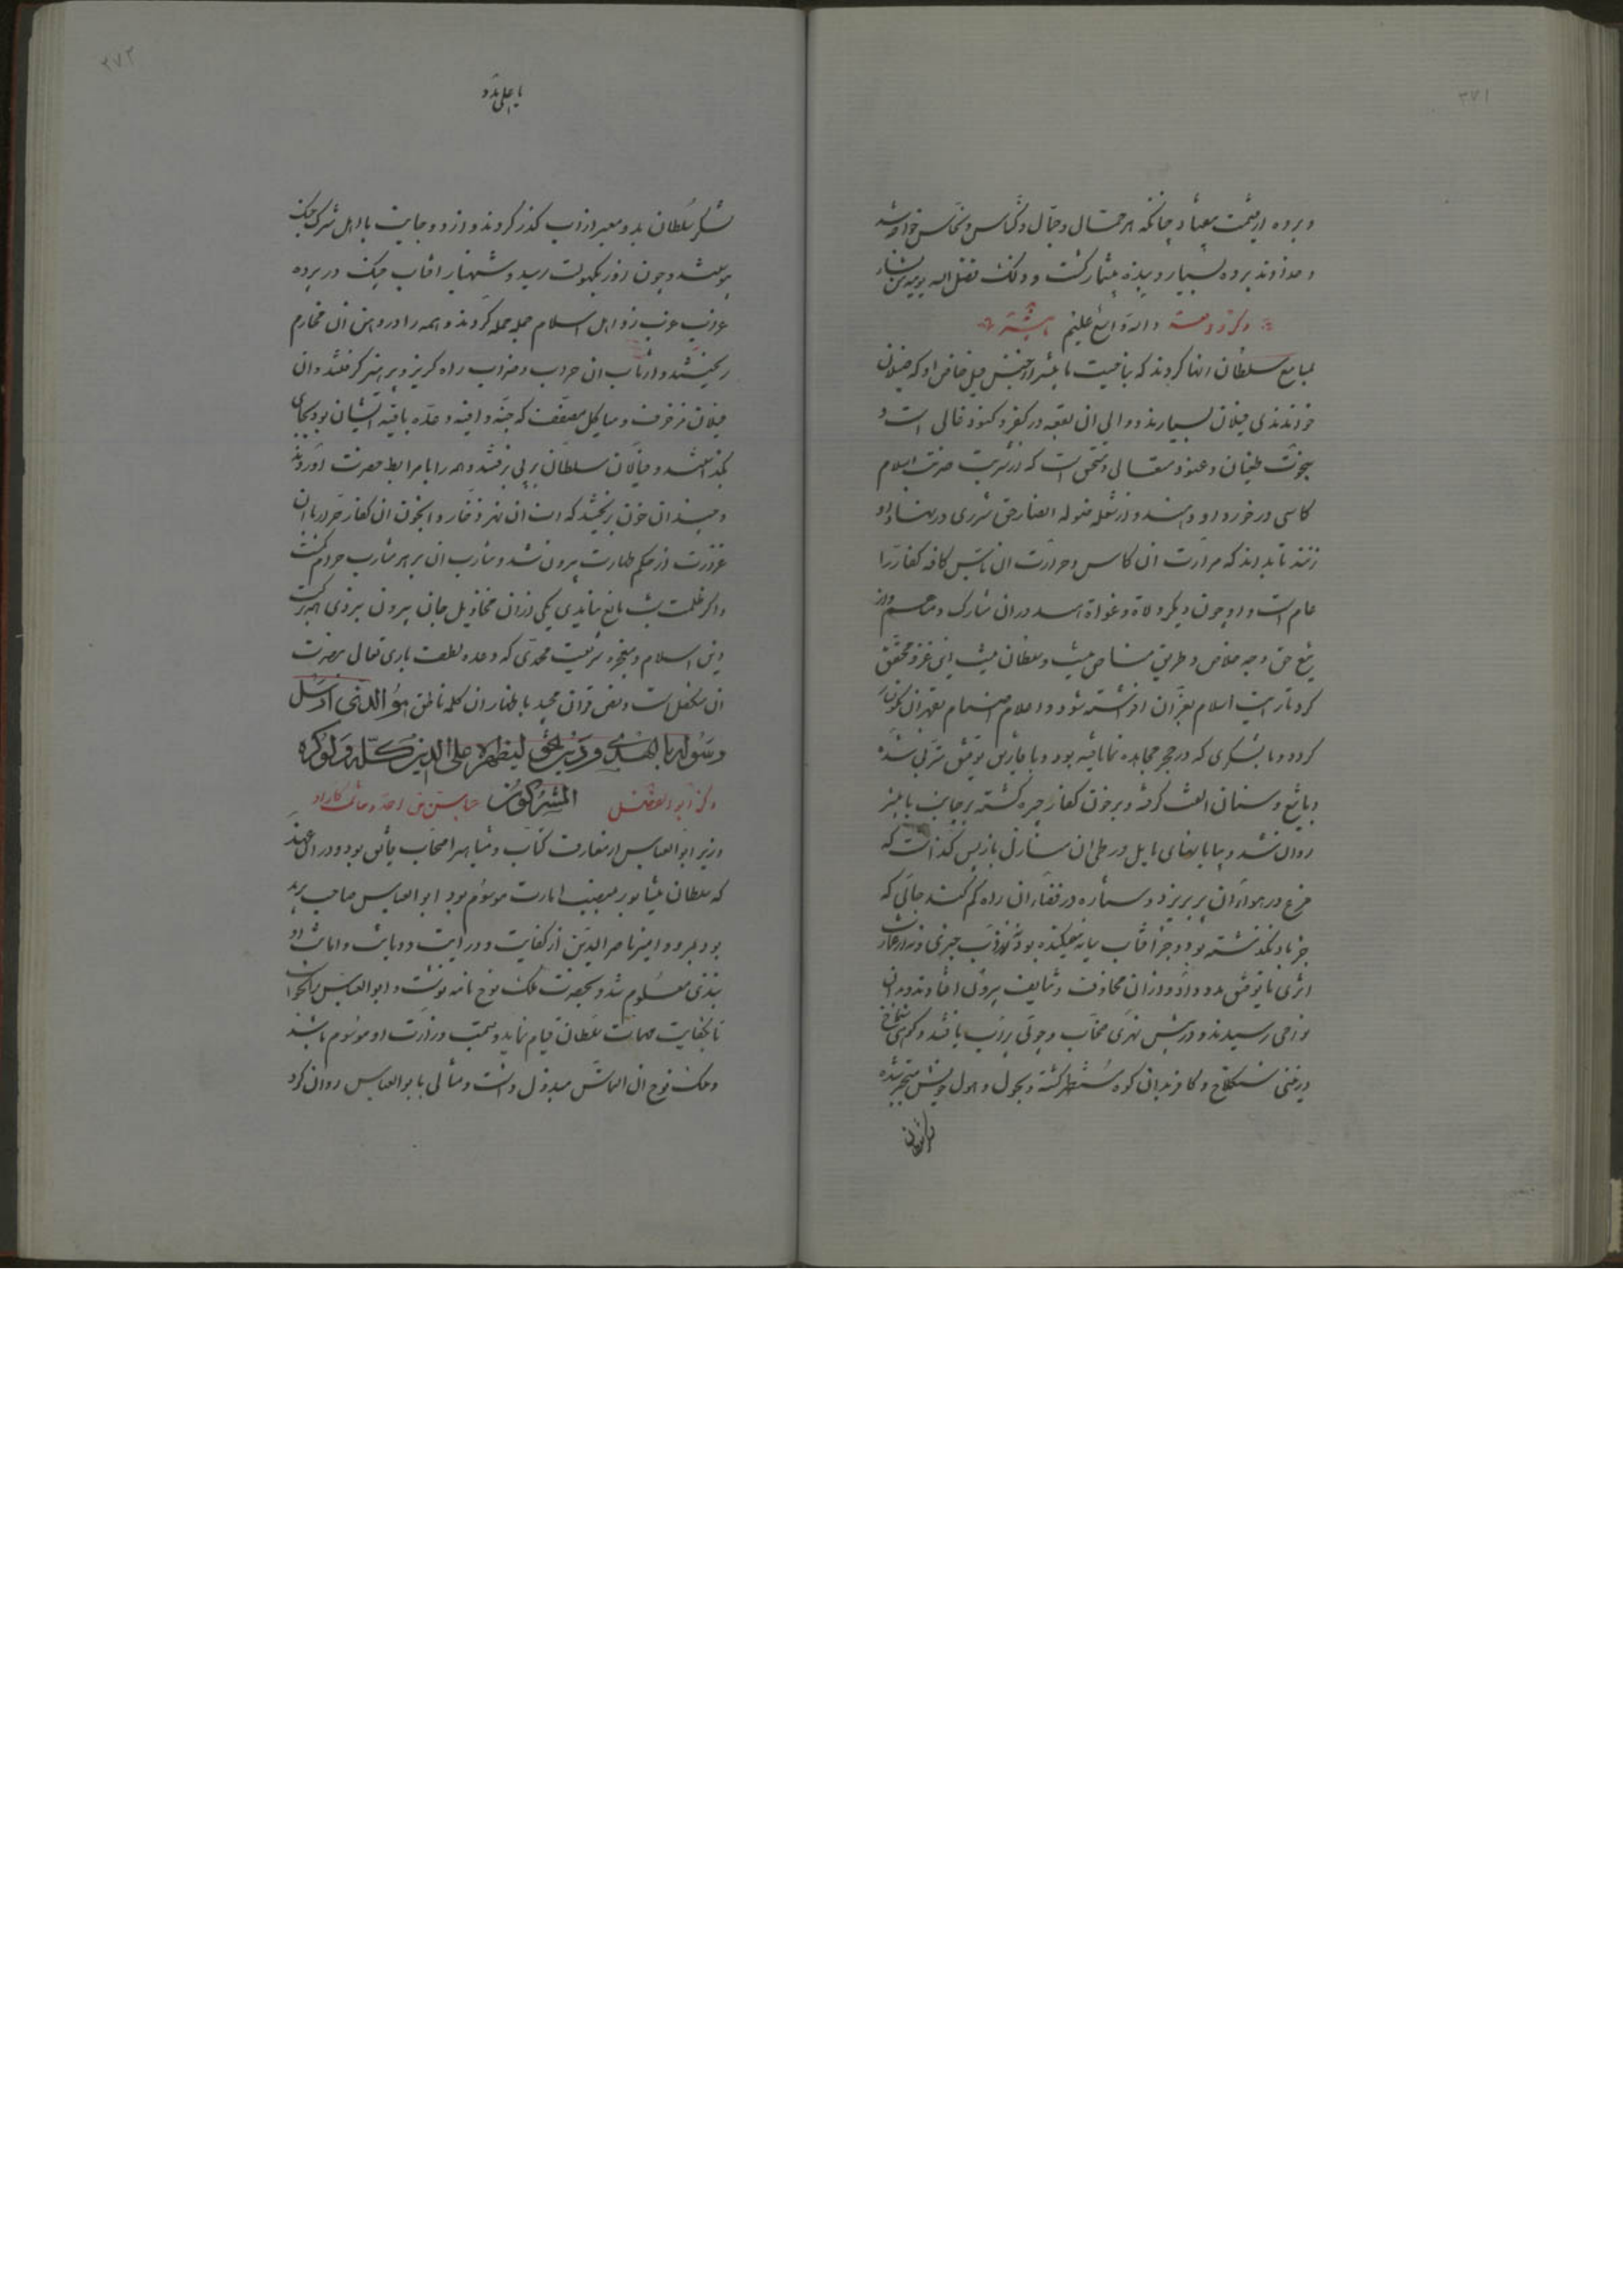 ۳۷۱
و برده از قیمت بیفتاد چنانکه هر حمّال و جمّال و کنّاس و نخّاس خواجه شد
و خداوند برده بسیار و برده بیشمار گشت و ذلک فضل الله یؤتیه من یشاء
والله واسع علیم
بمسامع سلطان انها کردند که بناحیت تانیشر از جنس فیل خاص او که فیلان
خوانند فیلان بسیارند و والی آن بقعه در کفر و کنود غالی است و
طغیان و عنود متعالی و مستحق است که از شربت ضربت اسلام
کاسی در خورد او دهند و از شعله صوله انصار حق شرری در نهاد او
زنند تا بداند که مرارت آن کاس و حرارت آن باس کافه کفار را
عام است و او چون دیگر ولاة و غواة اسد در آن مشارک و مساهم و از
تیغ حق وجه خلاص و طریق مناص نیست و سلطان نیت این غزو محقق
کرد تا رایت اسلام بعز آن افراشته شود و اعلام اصنام بقهر آن نگونسار
گردد و با لشکری که در حجر مجاهده نما یافته بود و با توفیق متربی شده
و با تیغ و سنان الفت گرفته و بر خون کفار چیره گشته بر جانب تانیشر
روان شد و بیابانهای هایل در طی آن منازل باز پس گذاشت که
مرغ در هواء آن پر بریزد و ستاره در فضاء آن راه گم کند جائی که
جز باد نگذشته بود و جز آفتاب سایه نیفکنده بود نه از آب خبری و نه از عمارت
اثری تا توفیق مدد داد و از آن مخاوف و متالف بیرون افتادند و بدان
نواحی رسیدند و در پیش نهری آب یافتند و کوهی شامخ
و زمینی سنگلاخ و کافر بدان کوه مستظهر گشته و بحول و هول خویش متحیر شده
۳۷۲
یا علی مدد
لشکر سلطان بدو معبر از آب گذر کردند و از دو جانب با اهل شرک جنگ
پیوستند و چون روز بکهولت رسید و شهسوار آفتاب در پرده
غروب اهل اسلام جمله حمله کردند و همه را در دهن آن مخارم
ریختند و ارباب آن حروب و ضراب راه گریز و پرهیز گرفتند و آن
فیلان مزخرف و هیاکل که جنّه واقیه و عدّه باقیه ایشان بود بجای
بگذاشتند و فیالان سلطان بر پی برفتند و همه را با مرابط حضرت آوردند
و چندان خون ریختند که آب آن نهر و از خون آن کفار
از حکم طهارت بیرون شد و مشارب آن بر هر شارب حرام گشت
و اگر ظلمت شب مانع نیامدی یکی از آن مخاذیل جان بیرون نبردی همه برکت
دین اسلام و معجزه شریعت محمدی که وعده لطف باری تعالی بنصرت
آن متکفل است و نص قرآن مجید باظهار آن کلمه ناطق هُوَ الَّذی اَرسَلَ
رَسُولَهُ بِالهُدی وَ دینِ الحَقِّ لِیُظهِرَهُ عَلَی الدّینِ کُلِّهِ وَ لَو کَرِهَ
المُشرِکُونَ ذکر ابوالعباس فضل بن احمد و کار او
وزیر ابوالعباس از معارف کتاب و مشاهیر اصحاب فایق بود و در آن عهد
که سلطان بنیسابور بمنصب امارت موسوم بود ابوالعباس صاحب برید
بود بمرو و امیر ناصرالدین از کفایت و درایت و دیانت و امانت او
معلوم شد و بحضرت ملک نوح نامه نوشت و ابوالعباس را بخواست
تا بکفایت مهمات سلطان قیام نماید و بسمت وزارت او موسوم باشد
و ملک نوح آن التماس مبذول داشت و مثالی بابوالعباس روان کرد